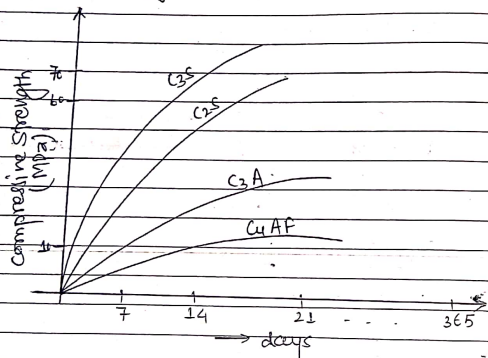 70
60
Compressive Strength
(MPa)
C3S
C2S
C3A
C4AF
7 14 21 - - - 365
→ days